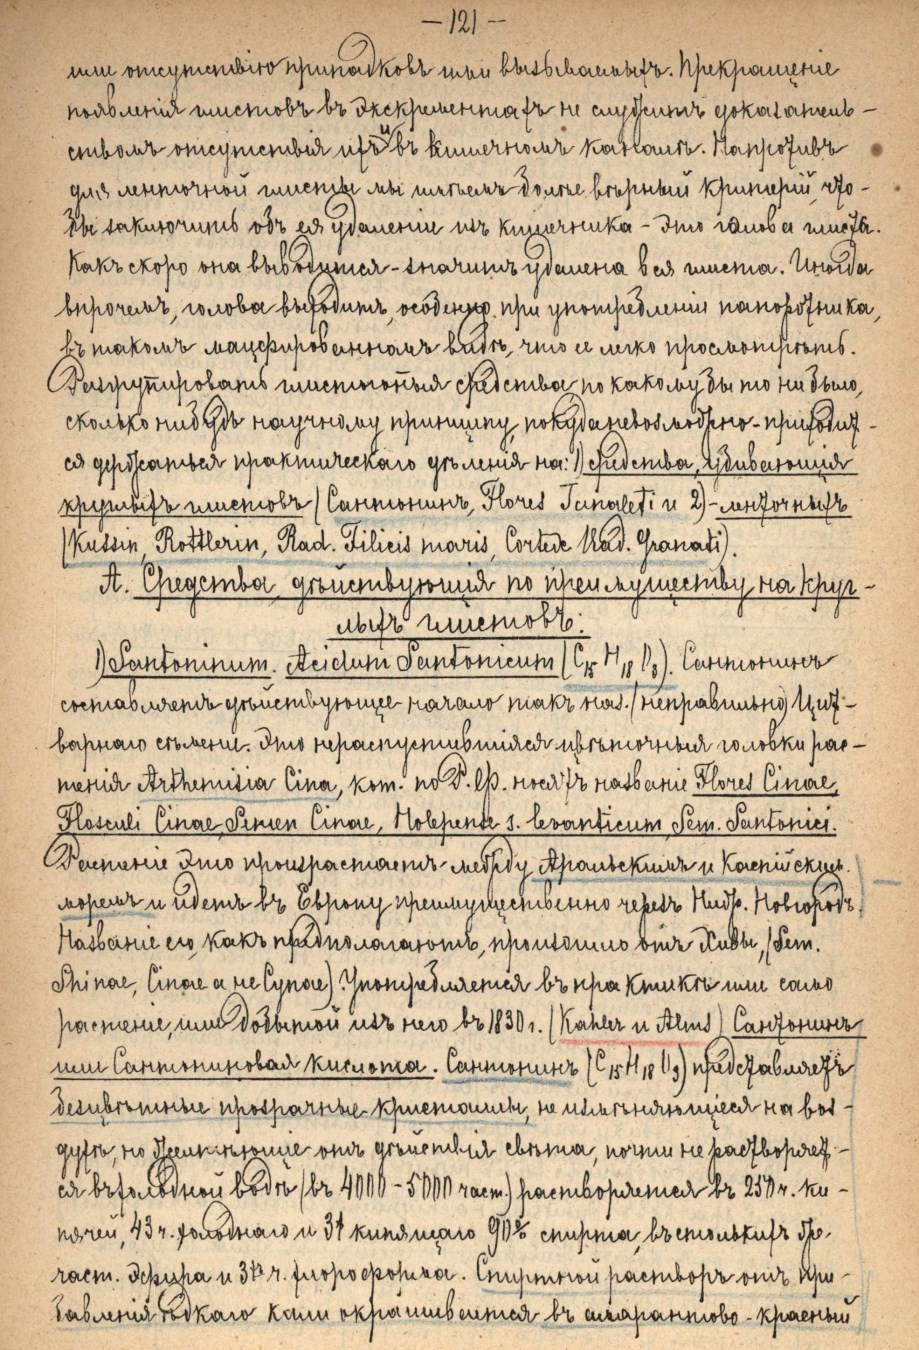 — 121 —
или отсутствію припадковъ ими вызываемыхъ. Прекращеніе
появленія глистовъ въ экскрементахъ не служитъ доказатель-
ствомъ отсутствія ихъ и въ кишечномъ каналѣ. Напротивъ
для ленточной глисты мы имѣемъ болѣе вѣрный критерій, что-
бы заключить объ ея удаленіи изъ кишечника - это голова глиста.
Какъ скоро она выводится - значитъ удалена вся глиста. Иногда
впрочемъ, голова выходитъ, особенно при употребленіи папоротника,
въ такомъ мацерированномъ видѣ, что ее легко просмотрѣть.
Разгрупировать глистогонныя средства, по какому бы то ни было,
сколько нибудь научному принципу, покуда невозможно - приходит-
ся держаться практическаго дѣленія на: 1) средства, убивающія
круглыхъ глистовъ (Сантонинъ, Flores Tanaceti и 2) - ленточныхъ
(Kussin, Rottlerin, Rad. Filicis maris, Cortex Rad. Granati).
А. Средства, дѣйствующія по преимуществу на круг-
лыхъ глистовъ:
1) Santoninum. Acidum Santonicum (C15 H18 O3). Сантонинъ
составляетъ дѣйствующее начало такъ наз. (неправильно) Цит-
варнаго сѣмени. Это нераспустившіяся цвѣточныя головки рас-
тенія Arthemisia Cina, кот. по Р. Ф. носятъ названіе Flores Cinae,
Flosculi Cinae, Semen Cinae, Halepense s. levanticum, Sem. Santonici.
Растеніе это произрастаетъ между Аральскимъ и Каспійскимъ
моремъ и идетъ въ Европу преимущественно черезъ Нижн. Новгородъ.
Названіе его, какъ предполагаютъ, произошло отъ Хивы, (Sem.
Shinae, Cinae а не Cynae). Употребляется въ практикѣ или само
растеніе, или добытой изъ него въ 1830 г. (Kahler и Alms) Сантонинъ
или Сантониновая кислота. Сантонинъ (C15 H18 O3) представляетъ
безцвѣтные прозрачные кристаллы, не измѣняющіеся на воз-
духѣ, но желтѣющіе отъ дѣйствія свѣта, почти не растворяет-
ся въ холодной водѣ (въ 4000 - 5000 част.) растворяется въ 250 ч. ки-
пячей, 43 ч. холоднаго и 3 кипящаго 90% спирта, въ столькихъ же
част. Эфира и 3 ч. хлороформа. Спиртной растворъ отъ при-
бавленія ѣдкаго кали окрашивается въ амарантово - красный